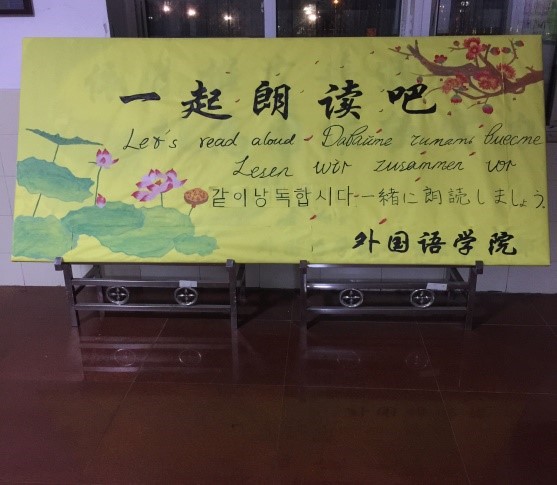 一起朗读吧
Let's read aloud Давайте читать вместе
Lesen wir zusammen vor
같이낭독합시다 一緒に朗読しましょう。
外国语学院